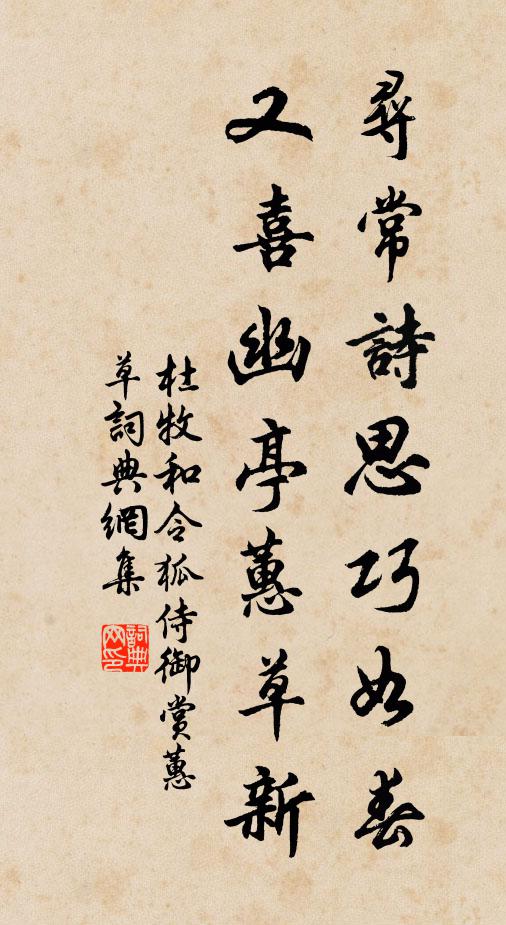 尋常詩思巧如春
又喜幽亭蕙草新
杜牧和令狐侍御賞蕙
草詞典網集
詞典
网印